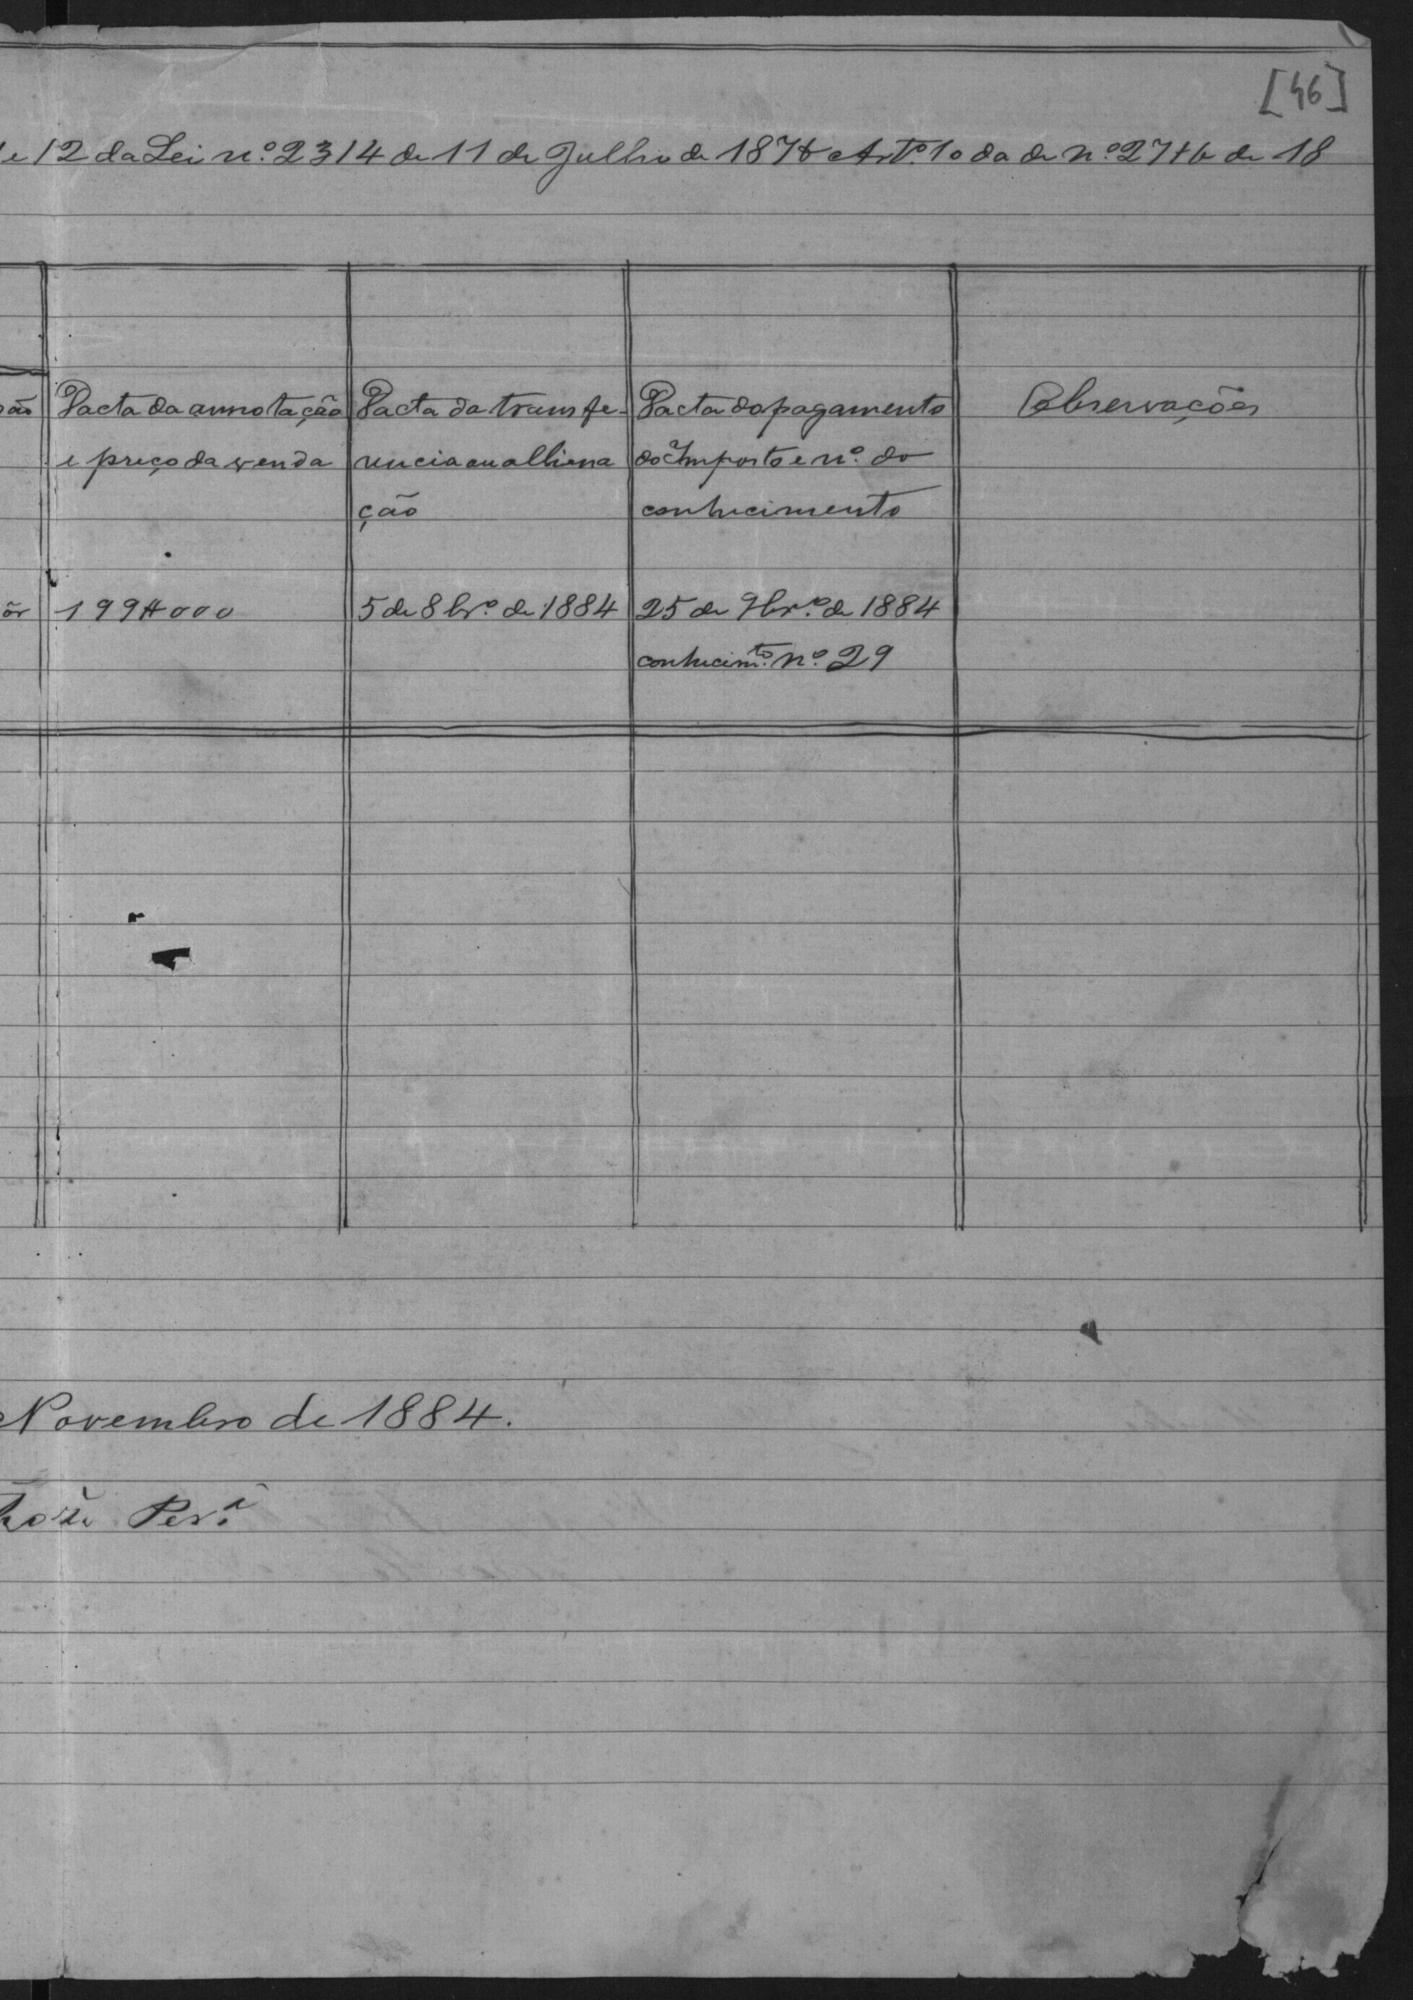 [46]
e 12 da Lei nº. 2314 de 11 de Julho de 1874 Artº. 10 da de nº 2746 de 18
ção Dacta da annotação Dacta da transfe- Dacta do pagamento Observações
e preço da venda rencia ou alliena do Imposto e nº. do
ção conhecimento
199#000 5 de 8brº. de 1884 25 de 9brº. de 1884
conhecimtº. nº. 29
Novembro de 1884.
Perª